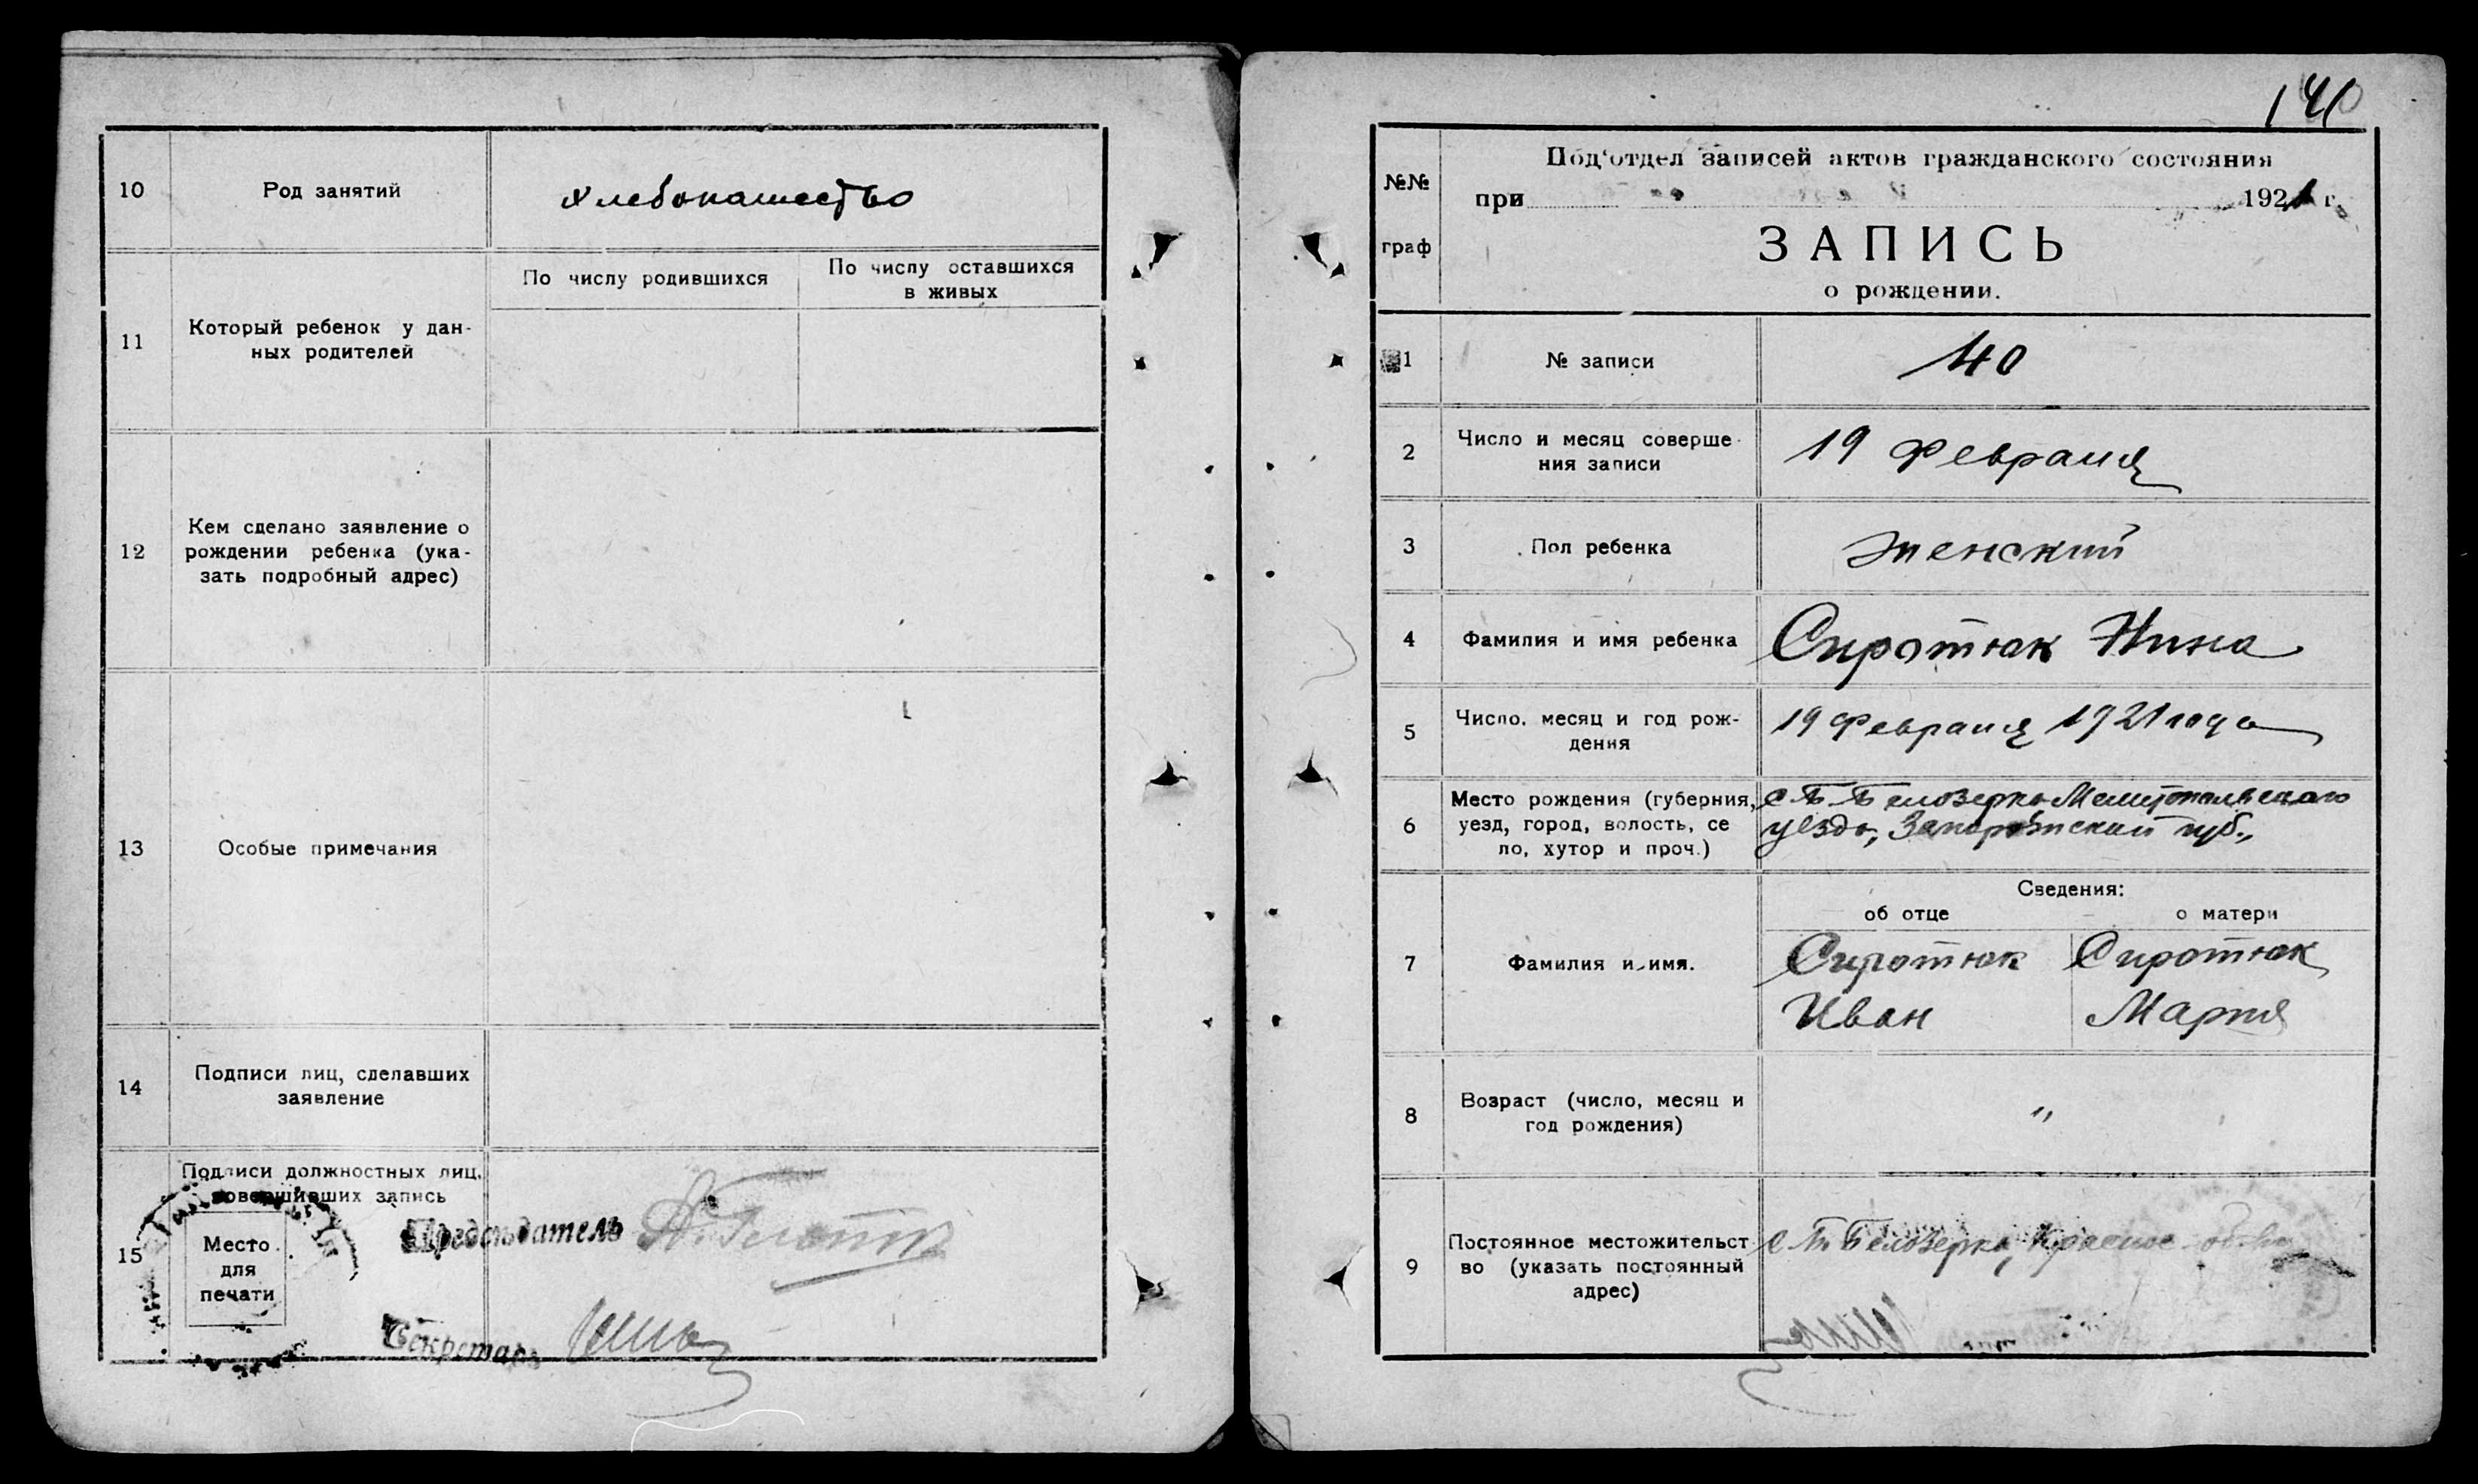 10
Род занятий
хлебопашество
11
Который ребенок у дан-
ных родителей
По числу родившихся
По числу оставшихся
в живых
12
Кем сделано заявление о
рождении ребенка (ука-
зать подробный адрес)
13
Особые примечания
14
Подписи лиц, сделавших
заявление
15
Подписи должностных лиц,
совершивших запись
Место
для
печати
Председатель
Секретарь
140
№№
граф
Под'отдел записей актов гражданского состояния
при 1921 г.
ЗАПИСЬ
о рождении.
1
№ записи
40
2
Число и месяц соверше-
ния записи
19 февраля
3
Пол ребенка
женский
4
Фамилия и имя ребенка
Сиротюк Нина
5
Число, месяц и год рож-
дения
19 февраля 1921 года
6
Место рождения (губерния,
уезд, город, волость, се
ло, хутор и проч.)
с. Б. Белозерка Мелитопольского
уезда, Запорожский губ.,
Сведения:
об отце
о матери
7
Фамилия и имя.
Сиротюк
Иван
Сиротюк
Мария
8
Возраст (число, месяц и
год рождения)
"
9
Постоянное местожительст
во (указать постоянный
адрес)
с. Б. Белозерка, Красное